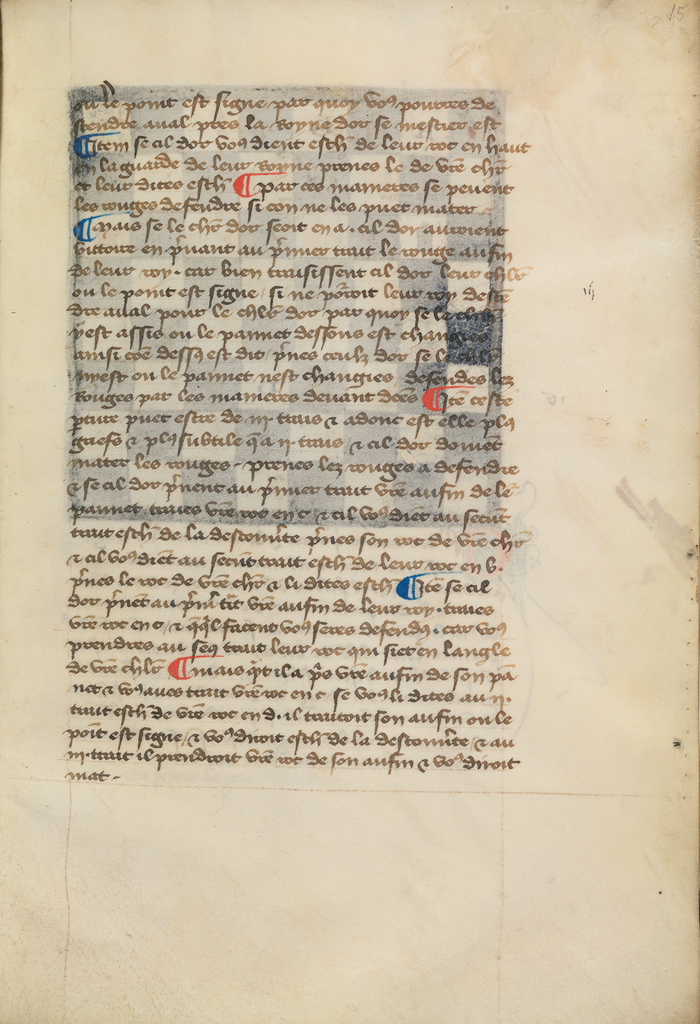 15
ou le point est signe par quoy voꝯ pourres de
stendre aual pres la royne dor se mestier est
¶ Item se cil dor voꝯ dient esch̄ de leur roc en haut
en la guarde de leur royne prenes le de vr̄e chr̄
et leur dites esch̄ ¶ par ces manieres se peuent
les rouges defendre si con ne les puet mater
¶ Mais se le chr̄ dor seoit en a. cil dor auroient
victoire en p̄nant au p̄mier trait le rouge aufin
de leur roy. car bien traisissent cil dor leur chlr̄
ou le point est signe / si ne porroit leur roy deste
dre aual pour le chlr̄ dor par quoy se le
yest assis ou le pannet dessous est changies
ainsi cōe dessꝯ est dit p̄nes ceulz dor se le
nyest ou le pannet nest changies defendes lez
Rouges par les manieres deuant dc̄es ¶ Itē ceste
ꝑture puet estre de iij. trais ⁊ adonc est elle plꝯ
griefs ⁊ plꝯ subtile q̄ a ij. trais ⁊ cil dor doiuēt
mater les rouges. prenes lez rouges a defendre
⁊ se cil dor p̄nent au p̄mier trait vr̄e aufin de le
pannet traies vr̄e roc en c. ⁊ cil voꝯ diēt au secūt
trait esch̄ de la descouūte p̄nes son roc de vr̄e chr̄
⁊ cil voꝯ diēt au secūt trait esch̄ de leur roc en b.
p̄nes le roc de vr̄e chr̄ ⁊ li dites esch̄ ¶ Itē se cil
dor p̄nēt au p̄mī t̄it vr̄e aufin de leur roy. traies
vr̄e roc en c. ⁊ q̄q̄l facent voꝯ seres defendꝯ. car voꝯ
prendres au seꝯ trait leur roc qui siet en langle
de vr̄e chlr̄ ¶ mais q̄t il a p̄s vr̄e aufin de son pā
net ⁊ voꝯ aues trait vr̄e roc en c se voꝯ li dites au ij.
trait esch̄ de vr̄e roc en d. il trairoit son aufin ou le
poīt est signe, ⁊ voꝯ diroit esch̄ de la descouūte, ⁊ au
iij. trait il prendroit vr̄e roc de son aufin ⁊ voꝯ diroit
mat.